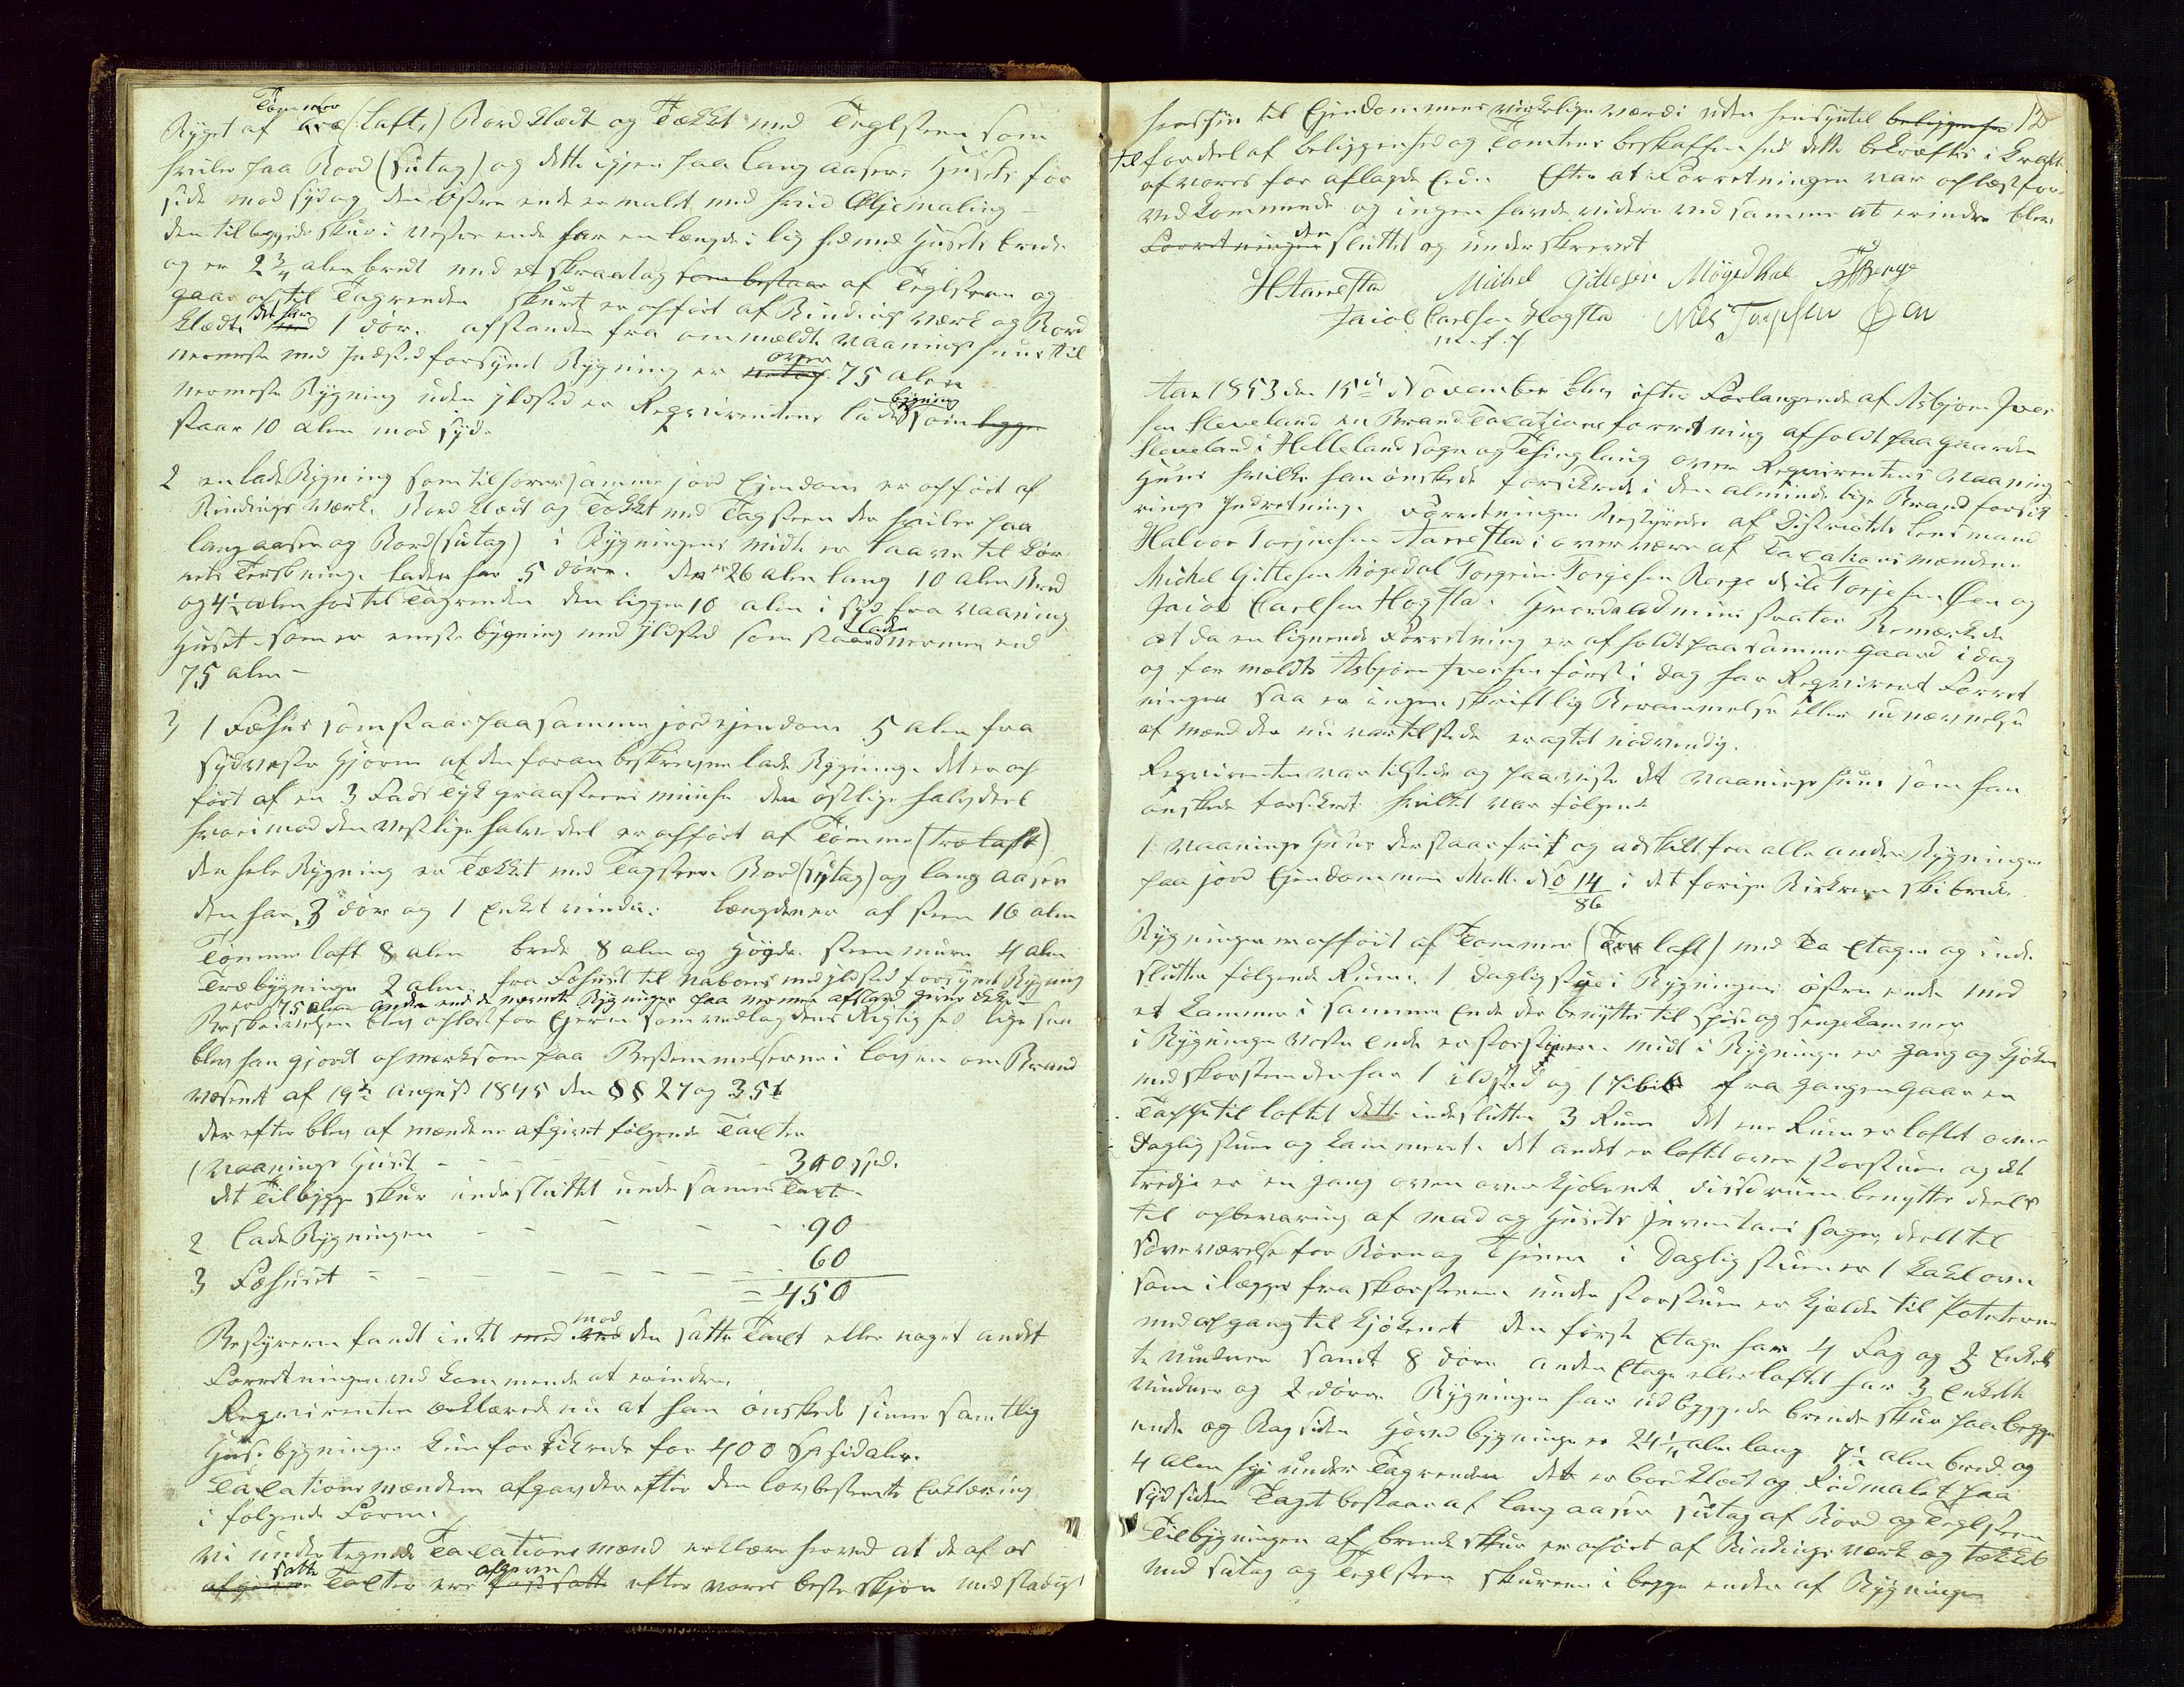 Tømmer
Bygt af træ (laft,) Bord klædt og Tækket med Teglsteen som
hviler paa Bord (sutag) og dette igjen paa lang aaser. Husets for
side mod syd og den østre ende er malet med hvid Oljemaling
den tilbyggede skur i vestre ende har en længde i lighed med Husets brede
og er 2 3/4 alen bredt med et skraatag som bestaar af Teglsteen og
gaar op til Tagrenden Skuret er opført af Bindings værk og Bord
klædt. det har med 1 dør. afstanden fra ommældte vaaningshuus til
nermeste med Ildsted forsynet Bygning er over 75 alen
nermeste Bygning uden ildsted er Reqvirentens lade bygning som ligge
staar 10 alen mod syd.
2 en lade Bygning som tilhører samme jord Ejendom er opført af
Bindings Værk. Bord klædt og Tækket med Tagsteen der hviler paa
langaaser og Bord (sutag) i Bygningens midte er Laave til Kor
nets Terskning. laden har 5 døre. den er 26 alen lang 10 alen Bred
og 4 1/2 alen høi til Tagrenden den ligger 10 alen i syd fra Vaaning
Huset. som er eneste bygning med Ildsted som staar laden nermere end
75 alen –
3 1 Fæhus som staar paa samme jord ejendom 5 alen fra
sydvestre Hjørne af den foran beskrevne lade Bygning. det er op
ført af en 3 Fods Tyk graasteens muur den østlige halvdeel
hvorimod den vestlige halvdeel er opført af Tømmer (træ laft)
den hele Bygning er Tækket med Tagsteen Bord (sutag) og lang aaser
den har 3 dør og 1 Enkel vindu: længden er af steen 16 alen
Tømmer laft 8 alen brede 8 alen og Høyde steen muren 4 alen
Træbygningen 2 alen. fra Fæhuset til naboens med Ildsted forsynet Bygning
er 75 alen andre end de nævnte Bygninger paa nermere afstand gives ikke
Beskrivelsen blev oplæst for Ejeren som vedtog dens Rigtighed, lige saa
blev han gjordt opmærksom paa Bestemmelserne i loven om Brand
væsenet af 19de August 1845 den §§ 27 og 35te
der efter blev af mændene afgivet følgende Taxter
1 Vaanings Huset - - - - - 300 spd.
det Tilbygge skur indesluttet under samme Taxt.
2 lade Bygningen - - - - - 90
3 Fæhuset - - - - - - 60
= 450
Bestyreren fandt intet mod den satte Taxt eller noget andet
Forretningen ved kommende at erindre.
Reqvirenten erklærede nu at han ønskede sine samtlig
Huse bygninger kun forsikrede for 400 Spesidaler.
Taxationsmændene afgav der efter den lovbestemte Erklæring
i følgende Form:
Vi undertegnede Taxationsmænd erklære herved at de af os
afgivne satte Taxter ere fastsatte afgivne efter vores beste skjøn med stadigt
12
hensyn til Ejendommens virkelige værdi uden hensyn til beliggenhe
til fordeel af beliggenhed og Tomtens beskaffenhed dette bekræftes i kraft
af vores før aflagde Eed. Efter at Forretningen var oplæst for
vedkommende og ingen havde videre ved samme at erindre blev
Forretningen den sluttet og underskrevet
H Aarrestad Michel Gittlesen Møgedal T T Berge
Jacob Carlsen Hogstad Niels Torjesen Øen
m. f. p
Aar 1853 den 15de November blev efter Forlangende af Asbjørn Iver
sen Sleveland en Brand Taxationsforretning afholdt paa gaarden
Sleveland i Helleland sogn og Thinglaug over Reqvirentens Vaaning
Huus hvilke han ønskede forsikrede i den almindelige Brandforsik
rings Indretning. Forretningen bestyredes af Distriktets Lensmand
Halvor Torjussen Aarrestad i overvære af Taxationsmændene
Michel Gittlesen Møgedal Torgrim Torgesen Berge Niels Torjesen Øen og
Jacob Carlsen Hogstad. Gaardadministrator Bemærkede
at da en lignende Forretning er afholdt paa samme gaard i dag
og for mældte Asbjørn Iversen først i dag har Reqvireret Forret
ningen saa er ingen skriftlig Berammelse eller udnævnelse
af mænd der nu var tilstede eragtet nødvendig.
Reqvirenten var tilstede og paaviste det vaaningshuus som han
ønskede forsikret hvilket var følgende
1 Vaanings Huus der staar frit og adskilt fra alle andre Bygninger
paa jord Ejendommen Matt. No 14/86 i det forrige Birkrem skibrede.
Bygningen er opført af Tømmer (Træ laft) med To Etager og inde
slutter følgende Rum. 1 Daglig stue i Bygningens østre ende med
et kammer i samme Ende der benyttes til spise og sengekammer
i Bygningens vestre Ende er storstuen. midt i Bygningen er gang og Kjøken
med skorsteen der har 1 ildsted og 1 Pibe fra gangen gaar en
Trappe til loftet dette indeslutter 3 Rum det ene Rum er loftet over
Daglig stuen og kammeret. det andet er loftet over storstuen og det
tredje er en gang oven over kjøkenet. disse rum benyttes deels
til opbevaring af mad og Husets Inventari sager, deels til
soveværelse for Børn og Tjenere i Daglig stuen er 1 kakelovn
som ilægges fra skorsteenen under storstuen er kjelder til Poteterne
med opgang til kjøkenet den første Etage har 4 Fag og 2 Enkel
te vinduer samt 8 døre anden Etage eller loftet har 3 Enkelte
vinduer og 2 døre. Bygningen har udbyggede brendeskur paa begge
ende og Bagsiden Hovedbygningen er 24 1/2 alen lang 7 1/2 alen bred og
4 alen høi under Tagrenden det er bordklædt og Rødmalet paa
sydsiden Taget bestaar af lang aaser sutag af Bord og Teglsteen
Tilbygningen af brendeskur er opført af Bindings værk og tækket
med sutag og Teglsteen skurene i begge ender af Bygningen